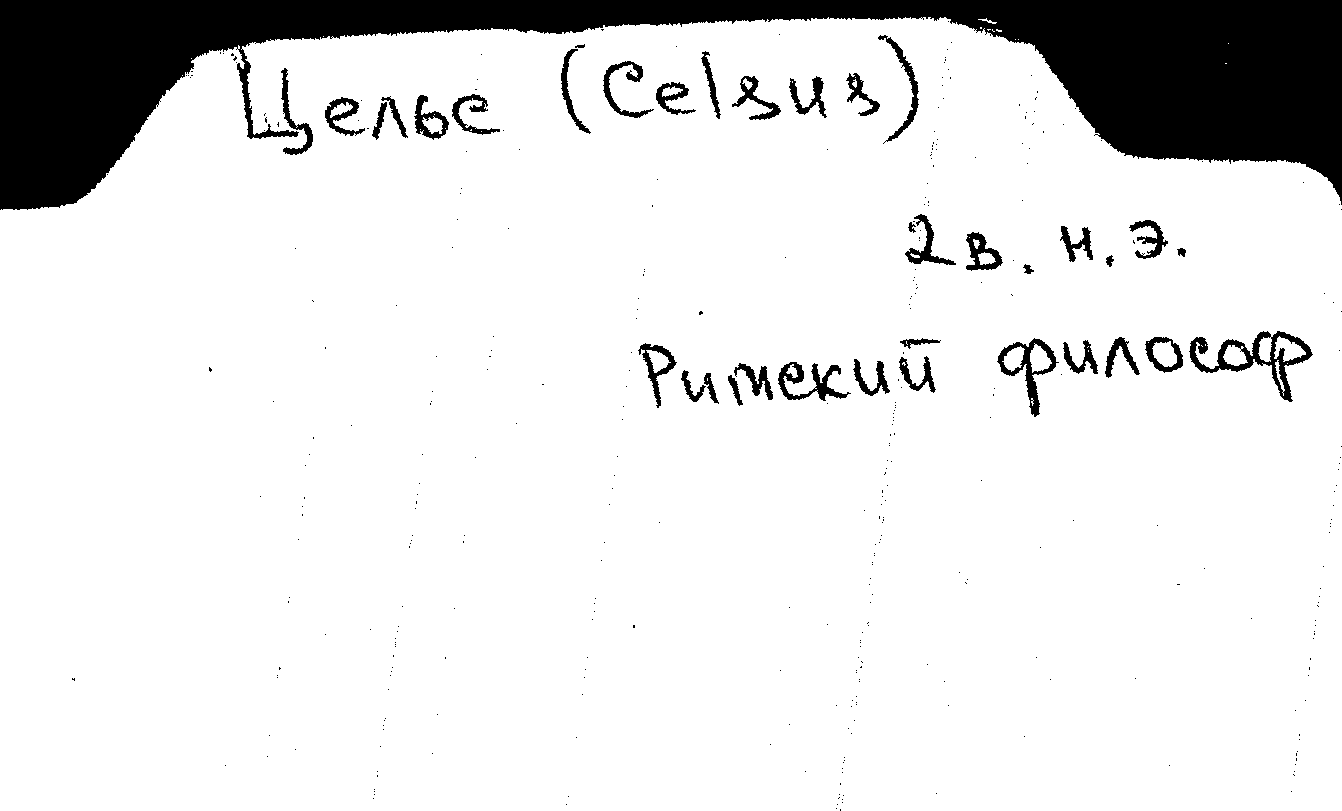 Цельс (Celsus)
2 в. н. э.
Римский философ